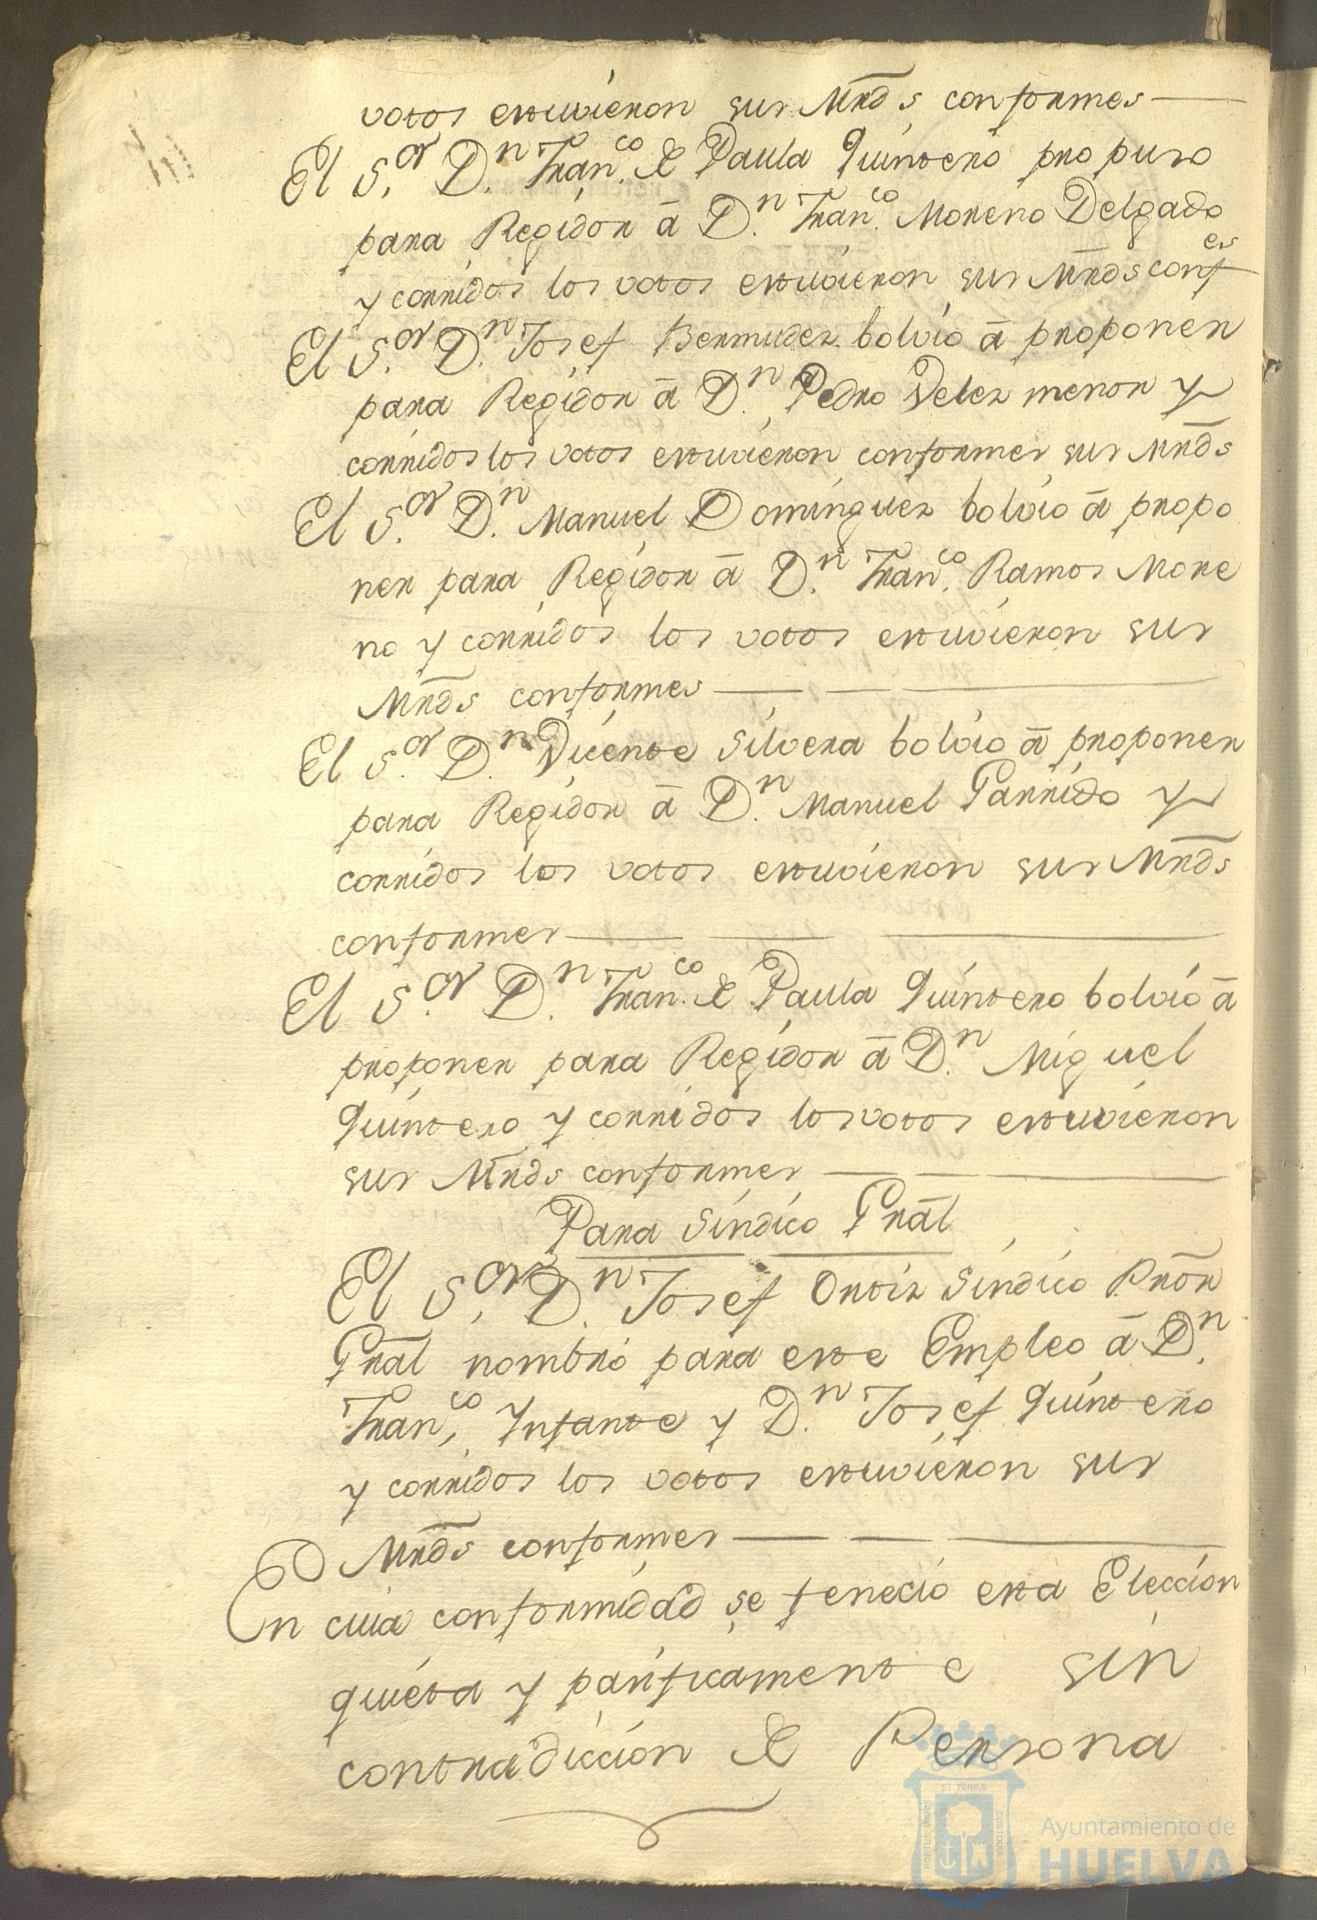 votos estuvieron sus Mrds conformes
El S.or D.n Fran.co de Paula Quintero propuso
para Regidor â D.n Fran.co Moreno Delgado
y corridos los votos estuvieron sus Mrds conf.es
El S.or D.n Josef Bermudez bolvio â proponer
para Regidor â D.n Pedro Velez menor y
corridos los votos estuvieron conformes sus Mrds
El S.or D.n Manuel Dominguez bolvio â propo
ner para Regidor â D.n Fran.co Ramos More
no y corridos los votos estuvieron sus
Mrds conformes
El S.or D.n Vicente Silvera bolvio â proponer
para Regidor â D.n Manuel Garrido y
corridos los votos estuvieron sus Mrds
conformes
El S.or D.n Fran.co de Paula Quintero bolvio â
proponer para Regidor â D.n Miguel
Quintero y corridos los votos estuvieron
sus Mrds conformes
Para Sindico Gral
El S.or D.n Josef Ortiz Sindico Pror
Gral nombró para este Empleo â D.n
Fran.co Infante y D.n Josef Quintero
y corridos los votos estuvieron sus
Mrds conformes
En cuia conformidad se feneció esta Elección
quieta y pasificamente sin
contradicción de Persona
Ayuntamiento de
HUELVA